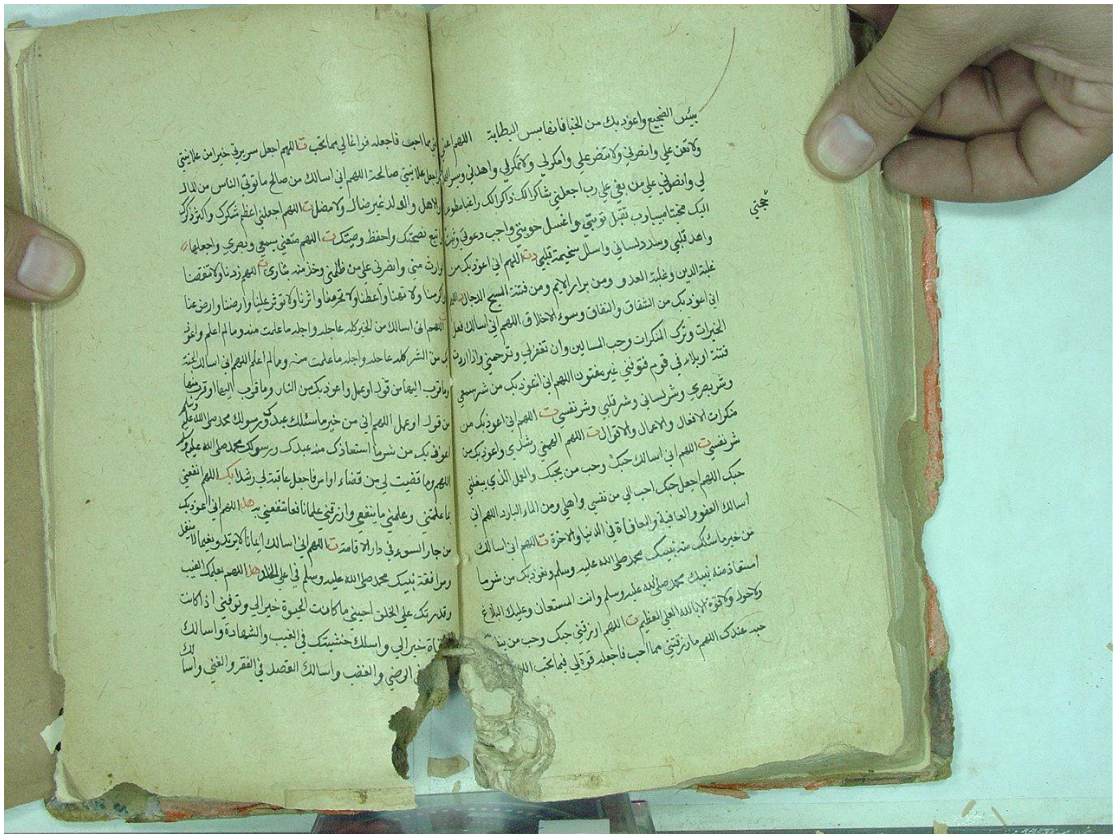 بئس الضجيع واعوذ بك من الخيانة فانها بئس البطانة اللهم اعني
ولا تعن علي وانصرني ولا تنصر علي وامكر لي ولا تمكر لي واهدني ويسر الهدى
لي وانصرني على من بغى علي رب اجعلني شاكرا لك ذاكرا لك راغبا مطواعا
حجتي
اليك مخبتا منيبا رب تقبل توبتي واغسل حوبتي واجب دعوتي وثبت
واهد قلبي وسدد لساني واسلل سخيمة قلبي دت اللهم اني اعوذ بك من
غلبة الدين وغلبة العدو ومن بوار الايم ومن فتنة المسيح الدجال اللهم
اني اعوذ بك من الشقاق والنفاق وسوء الاخلاق اللهم اني اسالك فعل
الخيرات وترك المنكرات وحب المساكين وان تغفر لي وترحمني واذا اردت
فتنة في قوم فتوفني غير مفتون اللهم اني اعوذ بك من شر سمعي
وشر بصري وشر لساني وشر قلبي وشر نفسي ت اللهم اني اعوذ بك من
منكرات الافعال والاعمال والاقوال ت اللهم الهمني رشدي واعوذ بك من
شر نفسي ت اللهم اني اسالك حبك وحب من يحبك والعمل الذي يبلغني
حبك اللهم اجعل حبك احب الي من نفسي واهلي ومن الماء البارد اللهم اني
اسالك العفو والعافية والمعافاة في الدنيا والاخرة ت اللهم اني اسالك
من خير ما سئلك منه نبيك محمد صلى الله عليه وسلم ونعوذ بك من شر ما
استعاذ منه نبيك محمد صلى الله عليه وسلم وانت المستعان وعليك البلاغ
ولا حول ولا قوة الا بالله العلي العظيم ت اللهم ارزقني حبك وحب من ينفعني
حبه عندك اللهم ما رزقتني مما احب فاجعله قوة لي فيما تحب اللهم
مما احب فاجعله فراغا لي مما تحب ت اللهم اجعل سريرتي خيرا من علانيتي
واجعل علانيتي صالحة اللهم اني اسالك من صالح ما توتي الناس من المال
والاهل والولد غير ضال ولا مضل ت اللهم اجعلني اعظم شكرك واكثر ذكرك
واتبع نصيحتك واحفظ وصيتك ت اللهم متعني بسمعي وبصري واجعلهما
الوارث مني وانصرني على من ظلمني وخذ منه ثاري ت اللهم زدنا ولا تنقصنا
واكرمنا ولا تهنا واعطنا ولا تحرمنا واثرنا ولا توثر علينا وارضنا وارض عنا
اللهم اني اسالك من الخير كله عاجله واجله ما علمت منه وما لم اعلم واعوذ
بك من الشر كله عاجله واجله ما علمت منه وما لم اعلم اللهم اني اسالك الجنة
وما قرب اليها من قول او عمل واعوذ بك من النار وما قرب اليها
من قول او عمل اللهم اني من خير ما سئلك عبدك ورسولك محمد صلى الله عليه وسلم
اعوذ بك من شر ما استعاذك منه عبدك ورسولك محمد صلى الله عليه وسلم
اللهم وما قضيت لي من قضاء او امر فاجعل عاقبة لي رشدا اللهم انفعني
بما علمتني وعلمني ما ينفعني وارزقني علما نافعا تنفعني به اللهم اني اعوذ بك
من جار السوء في دار الاقامة ت اللهم اني اسالك ايمانا لا يرتد ونعيما لا ينفد
ومرافقة نبيك محمد صلى الله عليه وسلم في اعلى الخلد اللهم بعلمك الغيب
وقدرتك على الخلق احيني ما كانت الحيوة خيرا لي وتوفني اذا كانت
الوفاة خيرا لي واسلك خشيتك في الغيب والشهادة واسالك
الرضي والغضب واسالك القصد في الفقر والغنى واسا لك